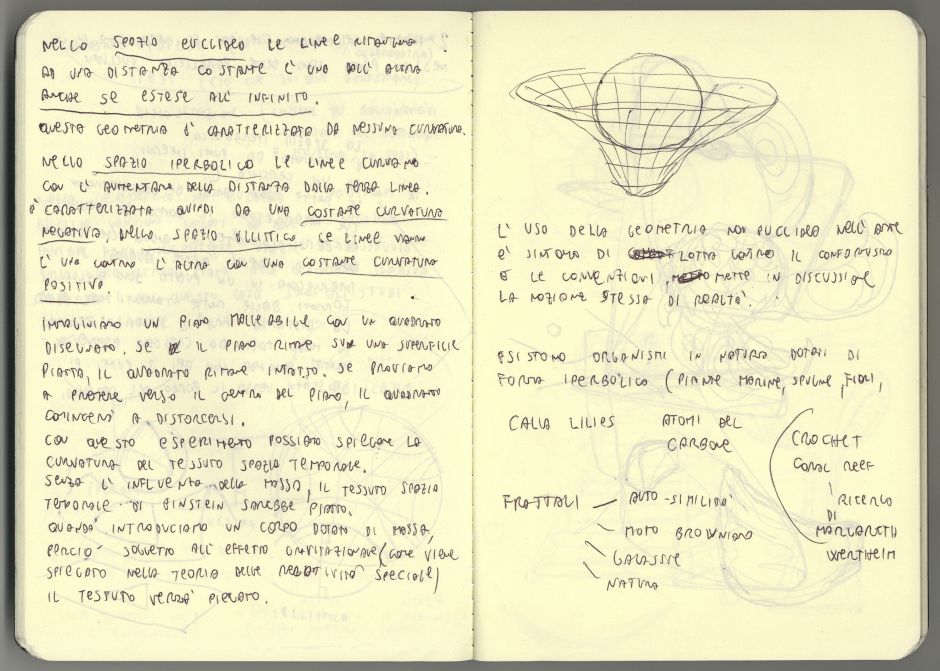 NELLO SPAZIO EUCLIDEO LE LINEE RIMANGONO
AD UNA DISTANZA COSTANTE L'UNA DALL'ALTRA
ANCHE SE ESTESE ALL'INFINITO.
QUESTA GEOMETRIA È CARATTERIZZATO DA NESSUNA CURVATURA.
NELLO SPAZIO IPERBOLICO LE LINEE CURVANO
CON L'AUMENTARE DELLA DISTANZA DALLA TERZA LINEA.
È CARATTERIZZATA QUINDI DA UNA COSTANTE CURVATURA
NEGATIVA, NELLO SPAZIO ELLITTICO LE LINEE VANNO
L'UNA CONTRO L'ALTRA CON UNA COSTANTE CURVATURA
POSITIVA.
IMMAGINIAMO UN PIANO MALLEABILE CON UN QUADRATO
DISEGNATO, SE IL PIANO RIMANE SU UNA SUPERFICIE
PIATTA, IL QUADRATO RIMANE INTATTO. SE PROVIAMO
A PREMERE VERSO IL CENTRO DEL PIANO, IL QUADRATO
COMINCERÀ A DISTORCERSI.
CON QUESTO ESPERIMENTO POSSIAMO SPIEGARE LA
CURVATURA DEL TESSUTO SPAZIO TEMPORALE.
SENZA L'INFLUENZA DELLA MASSA, IL TESSUTO SPAZIO
TEMPORALE DI EINSTEIN SAREBBE PIATTO.
QUANDO INTRODUCIAMO UN CORPO DOTATO DI MASSA,
PERCIÒ SOGGETTO ALL'EFFETTO GRAVITAZIONALE (COME VIENE
SPIEGATO NELLA TEORIA DELLE RELATIVITÀ SPECIALE)
IL TESSUTO VERRÀ PIEGATO.
L'USO DELLA GEOMETRIA NON EUCLIDEA NELL'ARTE
È SINTOMO DI LOTTA CONTRO IL CONFORMISMO
E LE CONVENZIONI, METTE IN DISCUSSIONE
LA NOZIONE STESSA DI REALTÀ.
ESISTONO ORGANISMI IN NATURA DOTATI DI
FORMA IPERBOLICO (PIANTE MARINE, SPUGNE, FIORI,
CALLA LILIES ATOMI DEL
CARBONE
CROCHET
CORAL REEF
RICERCA
DI
MARGARETH
WERTHEIM
FRATTALI — AUTO-SIMILIARITÀ
MOTO BROWNIANO
GALASSIE
NATURA